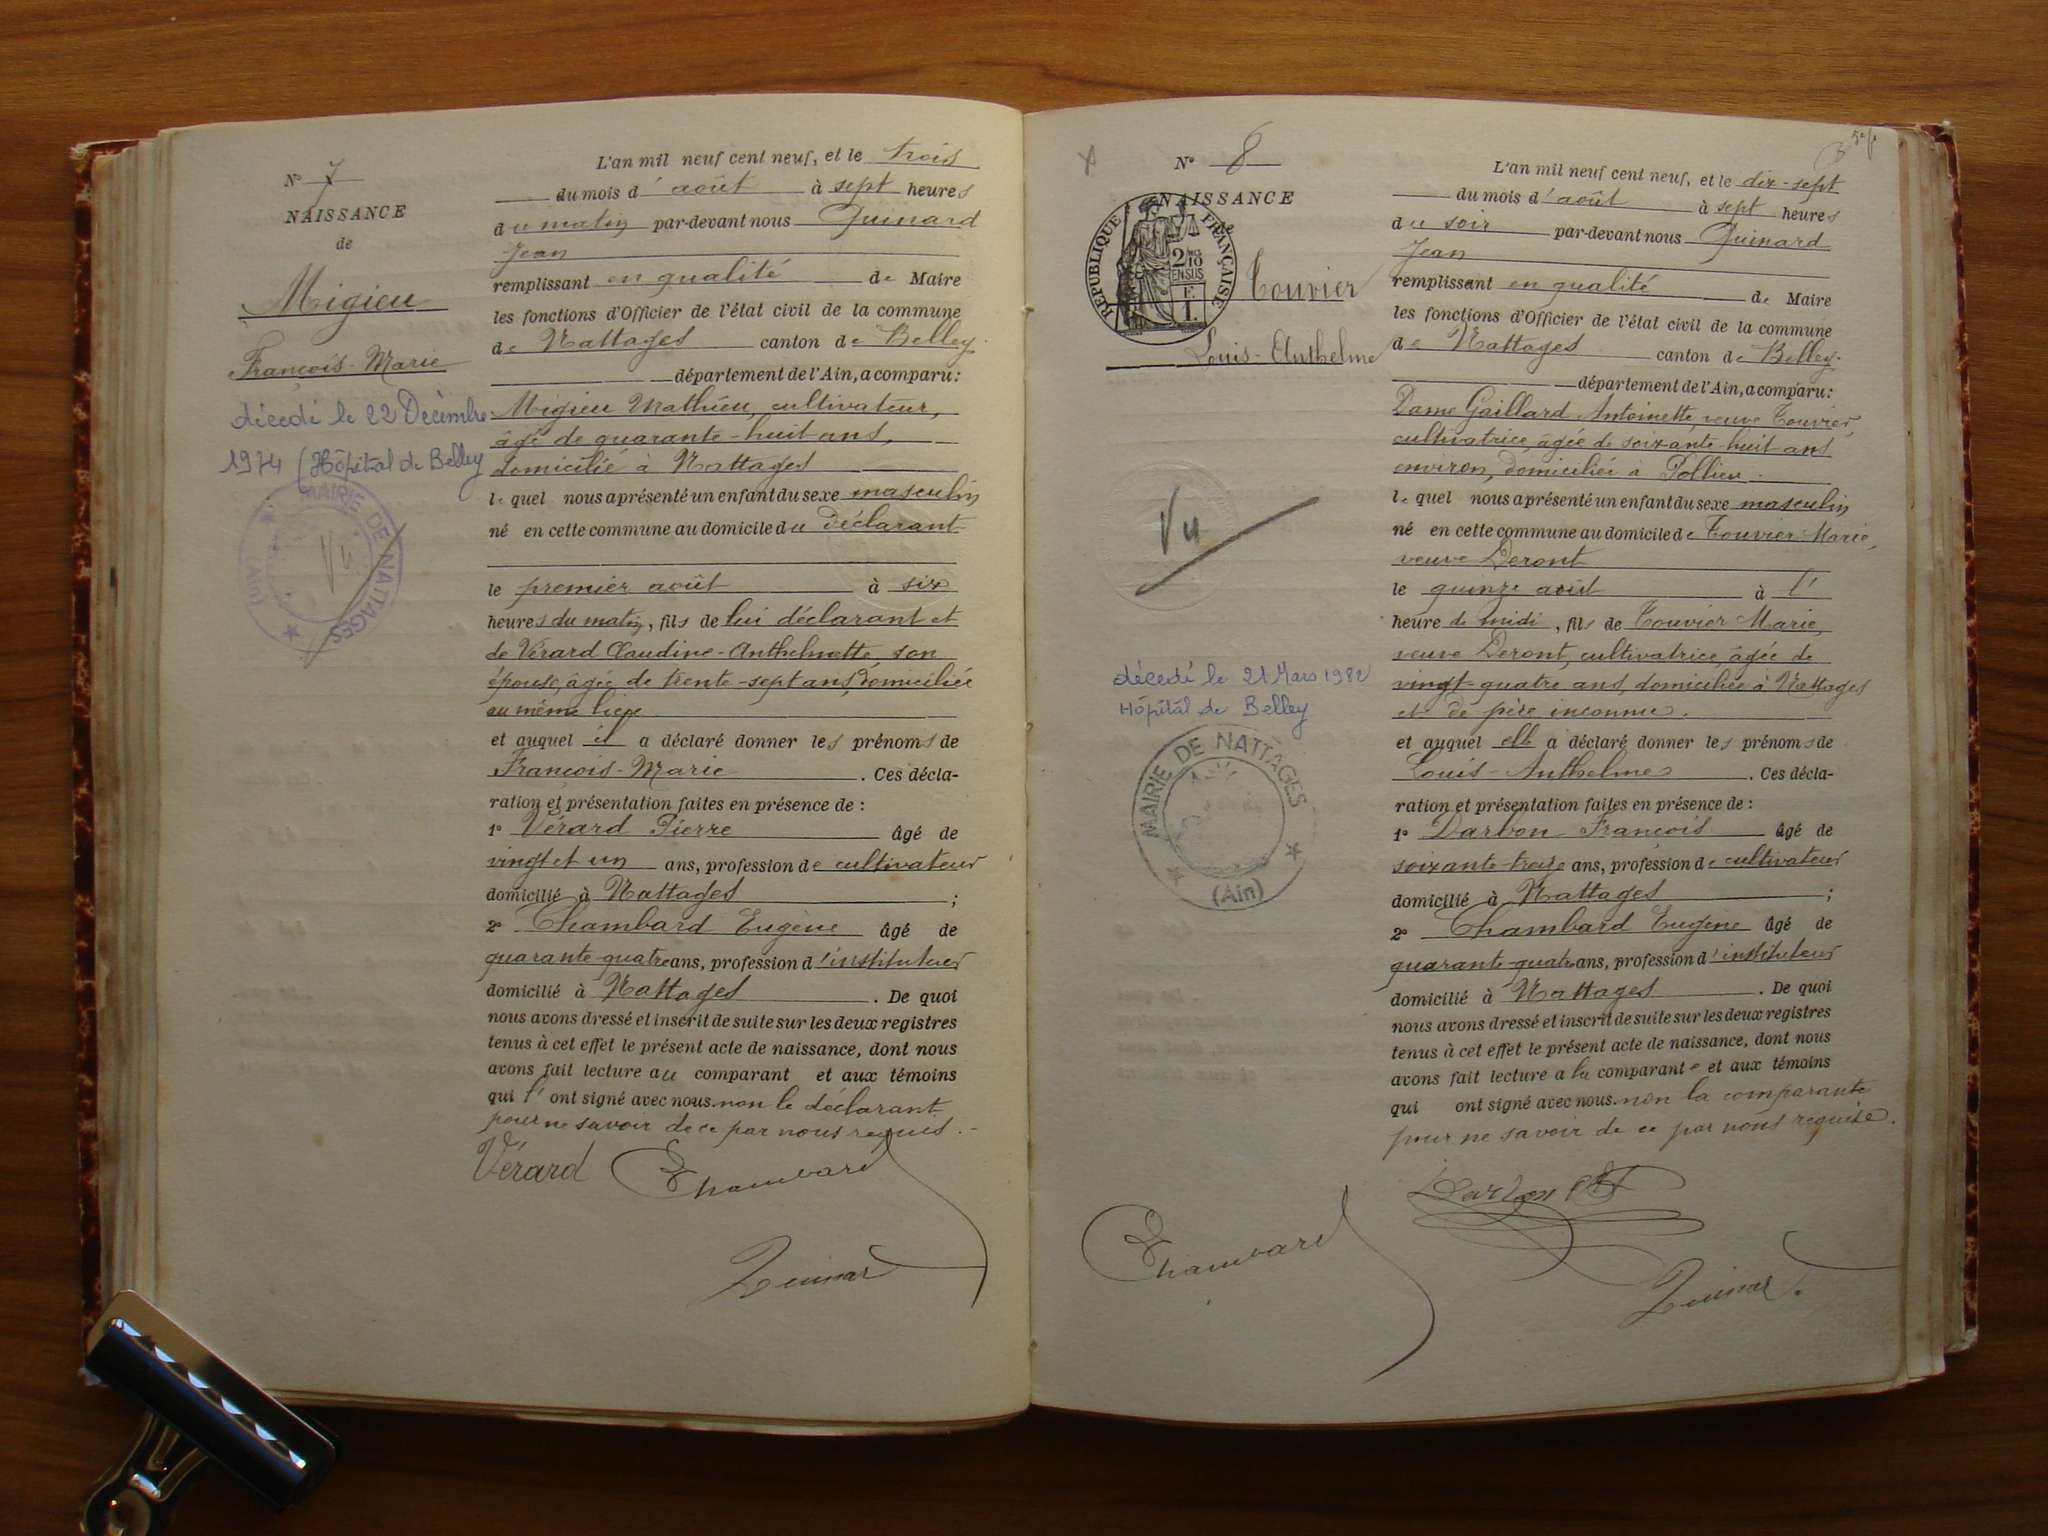 N° 7
NAISSANCE
de
Migieu
François-Marie
décédé le 22 Décembre
1974 (Hôpital de Belley
MAIRIE DE NATTAGES
(Ain)
Vu
L'an mil neuf cent neuf, et le trois
du mois d'août à sept heures
du matin par-devant nous Quinard
Jean
remplissant en qualité de Maire
les fonctions d'Officier de l'état civil de la commune
de Nattages canton de Belley.
département de l'Ain, a comparu:
Migieu Mathieu, cultivateur,
âgé de quarante-huit ans,
domicilié à Nattages
lequel nous a présenté un enfant du sexe masculin
né en cette commune au domicile du déclarant
le premier août à six
heures du matin, fils de lui déclarant et
de Vérard Claudine-Anthelmette, son
épouse, âgée de trente-sept ans, domiciliée
au même lieu
et auquel il a déclaré donner les prénoms de
François-Marie. Ces décla-
ration et présentation faites en présence de :
1° Vérard Pierre âgé de
vingt et un ans, profession de cultivateur
domicilié à Nattages ;
2° Chambard Eugène âgé de
quarante-quatre ans, profession d'instituteur
domicilié à Nattages. De quoi
nous avons dressé et inscrit de suite sur les deux registres
tenus à cet effet le présent acte de naissance, dont nous
avons fait lecture au comparant et aux témoins
qui l'ont signé avec nous. non le déclarant
pour ne savoir de ce par nous requis.-
Vérard Chambard
Quinard
N° 8
NAISSANCE
RÉPUBLIQUE FRANÇAISE
2/10 EN SUS
F. 1.
de
Touvier
Louis-Anthelme
Vu
décédé le 21 Mars 1982
Hôpital de Belley
MAIRIE DE NATTAGES
(Ain)
L'an mil neuf cent neuf, et le dix-sept
du mois d'août à sept heures
du soir par-devant nous Quinard
Jean
remplissant en qualité de Maire
les fonctions d'Officier de l'état civil de la commune
de Nattages canton de Belley.
département de l'Ain, a comparu:
Dame Gaillard Antoinette, veuve Touvier,
cultivatrice, âgée de soixante-huit ans
environ, domiciliée à Pollieu.
lequel nous a présenté un enfant du sexe masculin
né en cette commune au domicile de Touvier Marie,
veuve Deront
le quinze août à l'
heure de midi, fils de Touvier Marie,
veuve Deront, cultivatrice, âgée de
vingt-quatre ans, domiciliée à Nattages
et de père inconnu.
et auquel elle a déclaré donner les prénoms de
Louis-Anthelme. Ces décla-
ration et présentation faites en présence de :
1° Darbon François âgé de
soixante-treize ans, profession de cultivateur
domicilié à Nattages ;
2° Chambard Eugène âgé de
quarante-quatre ans, profession d'instituteur
domicilié à Nattages. De quoi
nous avons dressé et inscrit de suite sur les deux registres
tenus à cet effet le présent acte de naissance, dont nous
avons fait lecture a la comparante et aux témoins
qui ont signé avec nous. non la comparante
pour ne savoir de ce par nous requise.
Darbon
Chambard
Quinard.